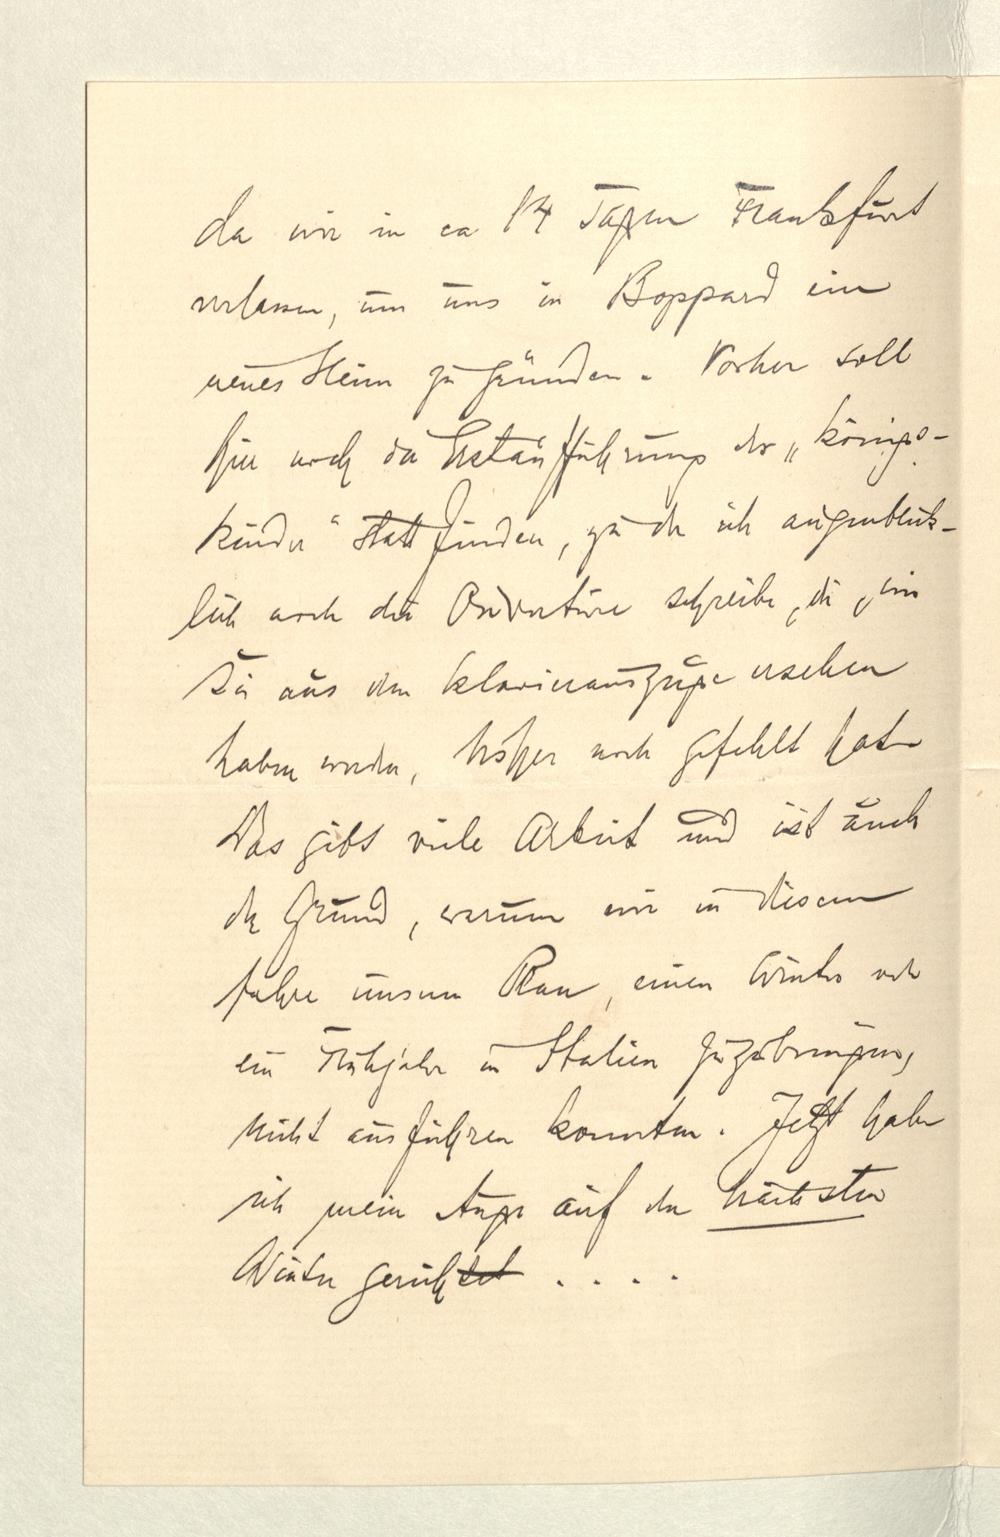 da wir in ca 14 Tagen Frankfurt
verlassen, um uns in Boppard ein
neues Heim zu gründen. Vorher soll
hier noch die Erstaufführung der „Königs-
kinder“ stattfinden, zu der ich augenblick-
lich noch die Ouvertüre schreibe, die, wie
Sie aus dem Klavierauszuge ersehen
haben werden, bisher noch gefehlt hat.
Das gibt viele Arbeit und ist auch
der Grund, warum wir in diesem
Jahre unseren Plan, einen Winter oder
ein Frühjahr in Italien zuzubringen,
nicht ausführen konnten. Jetzt habe
ich mein Auge auf den nächsten
Winter gerichtet . . . .